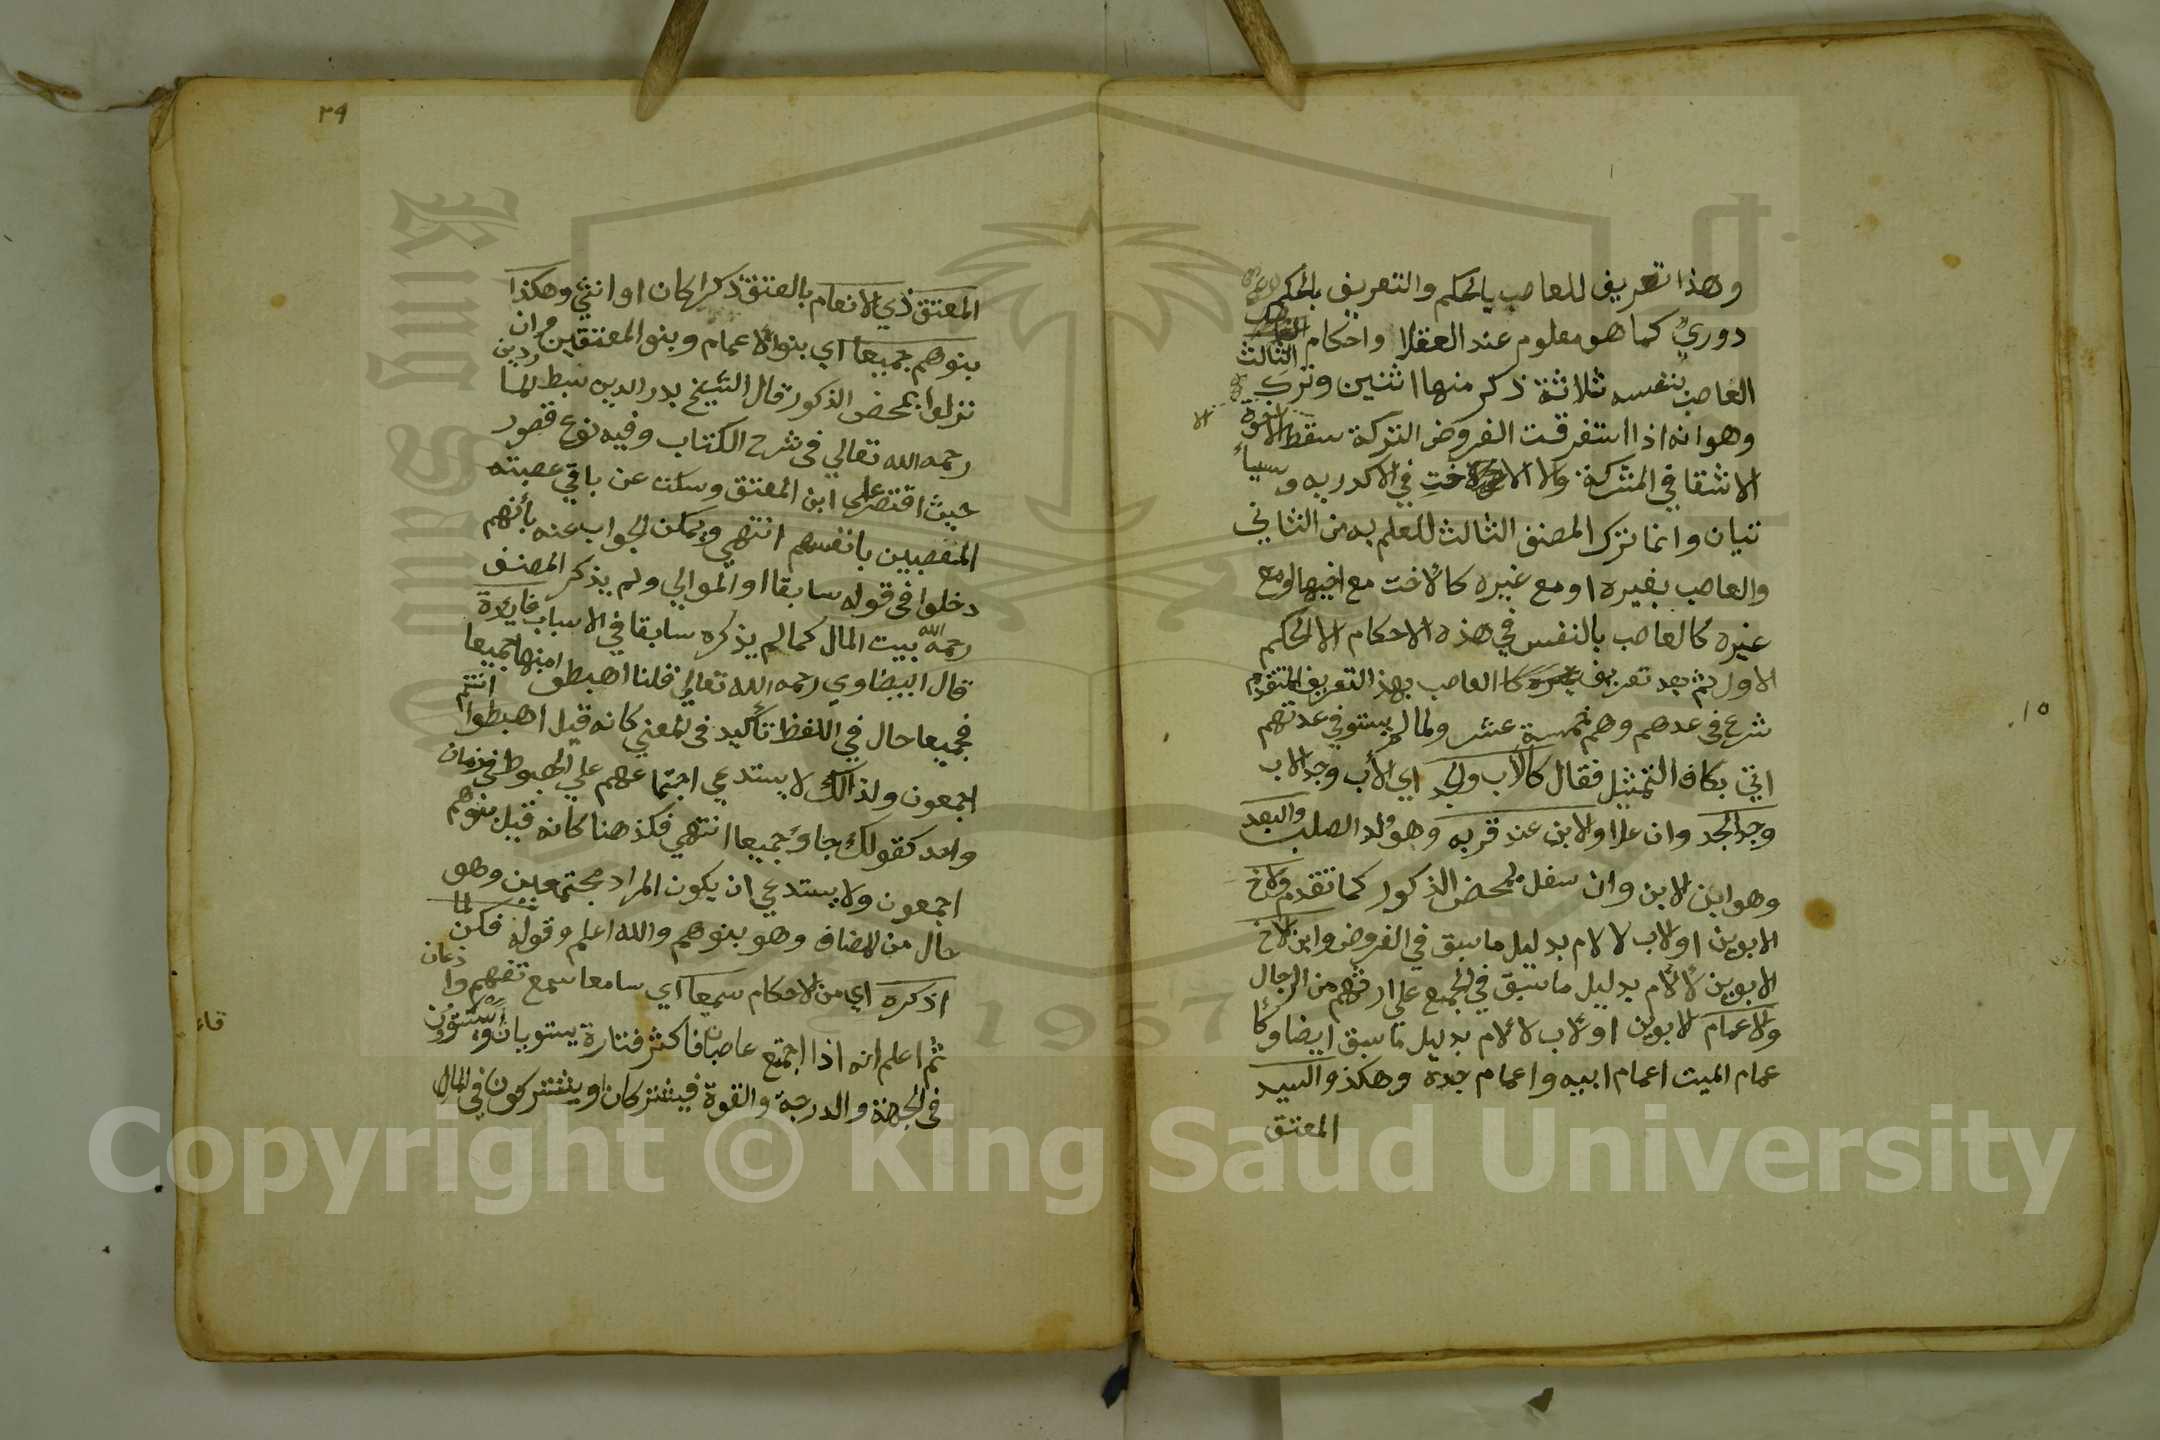 وهذا تعريف للعاصب بالحكم والتعريف بالحكم
دوري كما هو معلوم عند العقلا واحكام
العاصب بنفسه ثلاثة ذكر منها اثنين وترك الثالث
وهو انه اذا استغرقت الفروض التركة سقط الا الاخوة
الاشقا في المشركة والا الاخت في الاكدرية وسيأ
تيان وانما ترك المصنف الثالث للعلم به من الثاني
والعاصب بغيره او مع غيره كالاخت مع اخيها او مع
غيره كالعاصب بالنفس في هذه الاحكام الا الحكم
الاول ثم بعد تعريف العاصب بهذا التعريف المتقدم
شرع في عدهم وهم خمسة عشر ولما لم يستوفي عدتهم
اتي بكاف التمثيل فقال كالاب والجد اي الاب وجد الاب
وجد الجد وان علا والابن عند قربه وهو ولد الصلب والبعد
وهو ابن الابن وان سفل بمحض الذكور كما تقدم والاخ
لابوين او لاب لا لام بدليل ما سبق في الفروض وابن الاخ
لابوين لا لام بدليل ما سبق في الجميع علي ارثهم من الرجال
والاعمام لابوين او لاب لا لام بدليل ما سبق ايضا وكا
عمام الميت اعمام ابيه واعمام جده وهكذ والسيد
المعتق
١٥
٣٩
المعتق ذي الانعام بالعتق ذكرا كان او انثي وهكذا
بنوهم جميعا اي بنوا الاعمام وبنو المعتقين وان
نزلوا بمحض الذكور قال الشيخ بدر الدين سبط الماردين
رحمه الله تعالي في شرح الكتاب وفيه نوع قصور
حيث اقتصر علي ابن المعتق وسكت عن باقي عصبته
المتعصبين بانفسهم انتهي ويمكن الجواب عنه بأنهم
دخلوا في قوله سابقا او الموالي ولم يذكر المصنف
رحمه الله بيت المال كما لم يذكره سابقا في الاسباب فايدة
قال البيضاوي رحمه الله تعالي قلنا اهبطو امنها جميعا
فجميعا حال في اللفظ تأكيد في المعني كانه قيل اهبطوا انتم
اجمعون ولذالك لا يستدعي اجتماعهم علي الهبوط في زمان
واحد كقولك جاؤ جميعا انتهي فكذ هنا كانه قيل بنوهم
اجمعون ولا يستدعي ان يكون المراد مجتمعين وهو
حال من المضاف وهو بنوهم والله اعلم وقوله فكن لما
اذكره اي من الاحكام سميعا اي سامعا سمع تفهم واذعان
ثم اعلم انه اذا اجتمع عاصبان فاكثر فتارة يستويان او يستوون
في الجهة والدرجة والقوة فيشتركان او يشتركون في المال
King Saud University
1957
Copyright © King Saud University